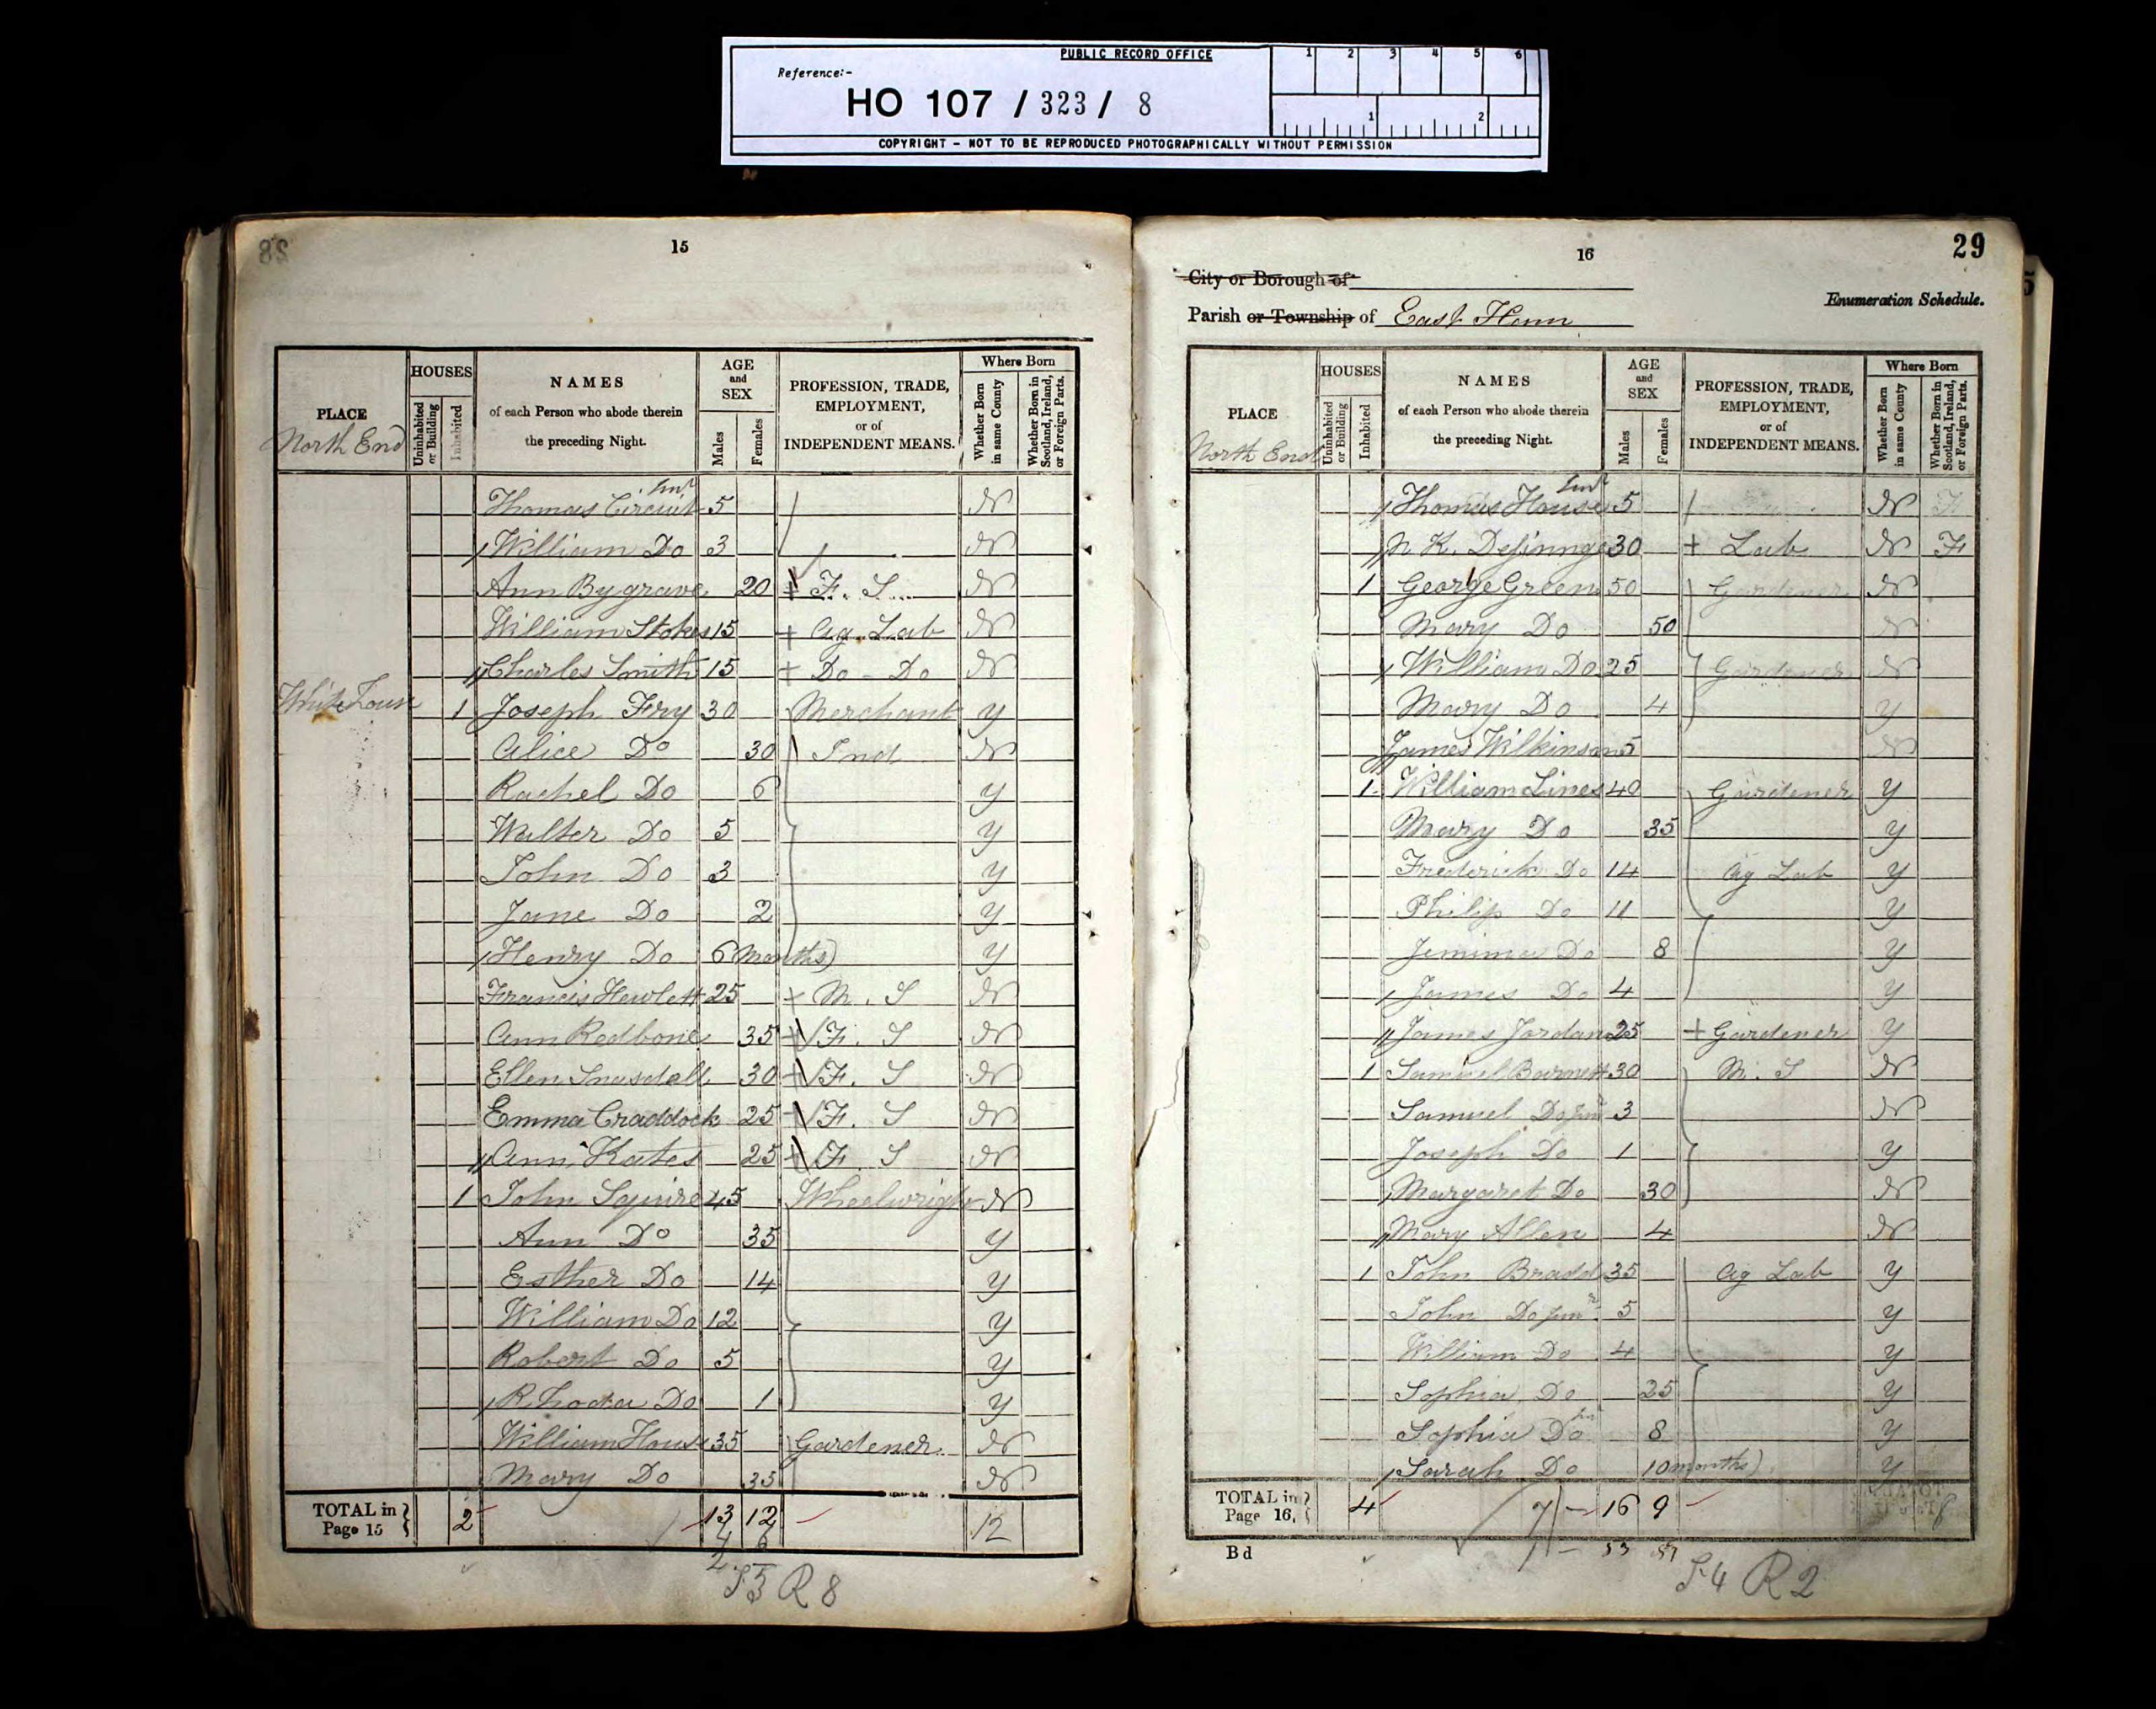 PUBLIC RECORD OFFICE
Reference:-
HO 107 / 323 / 8
1 2 3 4 5 6
1 2
COPYRIGHT - NOT TO BE REPRODUCED PHOTOGRAPHICALLY WITHOUT PERMISSION
15
PLACE
North End
HOUSES
Uninhabited or Building
Inhabited
NAMES
of each Person who abode therein
the preceding Night.
AGE
and
SEX
Males
Females
PROFESSION, TRADE,
EMPLOYMENT,
or of
INDEPENDENT MEANS.
Where Born
Whether Born in same County
Whether Born in Scotland, Ireland, or Foreign Parts.
Thomas Circuit Junr 5 N
William Do 3 N
Ann Bygrave 20 F. S. N
William Stokes 15 Ag. Lab N
Charles Smith 15 Do - Do N
White house 1 Joseph Fry 30 Merchant Y
Alice Do 30 Ind N
Rachel Do 6 Y
Walter Do 5 Y
John Do 3 Y
Jane Do 2 Y
Henry Do 6 Months) Y
Francis Hewlett 25 M. S N
Ann Redbone 35 F. S N
Ellen Snasdell 30 F. S N
Emma Craddock 25 F. S N
Ann Kates 25 F. S N
1 John Squire 45 Wheelwright N
Ann Do 35 Y
Esther Do 14 Y
William Do 12 Y
Robert Do 5 Y
Rhoda Do 1 Y
William House 35 Gardener N
Mary Do 35 N
TOTAL in Page 15 2 13 12 12
R 8
16
29
City or Borough of
Enumeration Schedule.
Parish or Township of East Ham
PLACE
North End
HOUSES
Uninhabited or Building
Inhabited
NAMES
of each Person who abode therein
the preceding Night.
AGE
and
SEX
Males
Females
PROFESSION, TRADE,
EMPLOYMENT,
or of
INDEPENDENT MEANS.
Where Born
Whether Born in same County
Whether Born in Scotland, Ireland, or Foreign Parts.
Thomas House Junr 5 N F
30 Lab N F
1 George Green 50 Gardener N
Mary Do 50 N
William Do 25 Gardener N
Mary Do 4 Y
James Wilkinson 5 N
1 William Lines 40 Gardener Y
Mary Do 35 Y
Frederick Do 14 Ag Lab Y
Philip Do 11 Y
Jemima Do 8 Y
James Do 4 Y
James Jordan 25 Gardener Y
1 Samuel Barnett 30 M. S N
Samuel Do Junr 3 N
Joseph Do 1 Y
Margaret Do 30 N
Mary Allen 4 N
1 John Bradd 35 Ag Lab Y
John Do Junr 5 Y
William Do 4 Y
Sophia Do 25 Y
Sophia Do Junr 8 Y
Sarah Do 10 months) Y
TOTAL in Page 16. 4 16 9
Bd
R 2